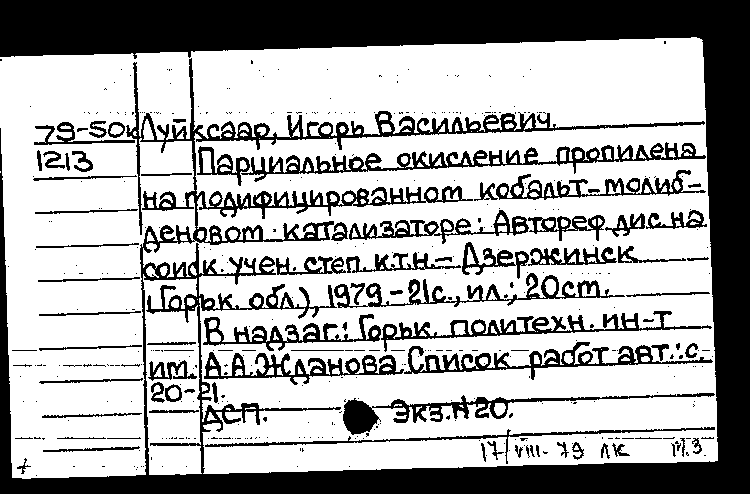 79-50к Луйксаар, Игорь Васильевич.
1213 Парциальное окисление пропилена
на модифицированном кобальт-молиб-
деновом катализаторе: Автореф.дис.на
соиск.учен.степ.к.т.н.- Дзержинск
(Горьк. обл.), 1979.-21с., ил.; 20см.
В надзаг.: Горьк. политехн. ин-т
им. А.А.Жданова.Список работ авт.:с.
20-21.
ДСП. Экз.№20.
17/VIII-79 ЛК М.З.